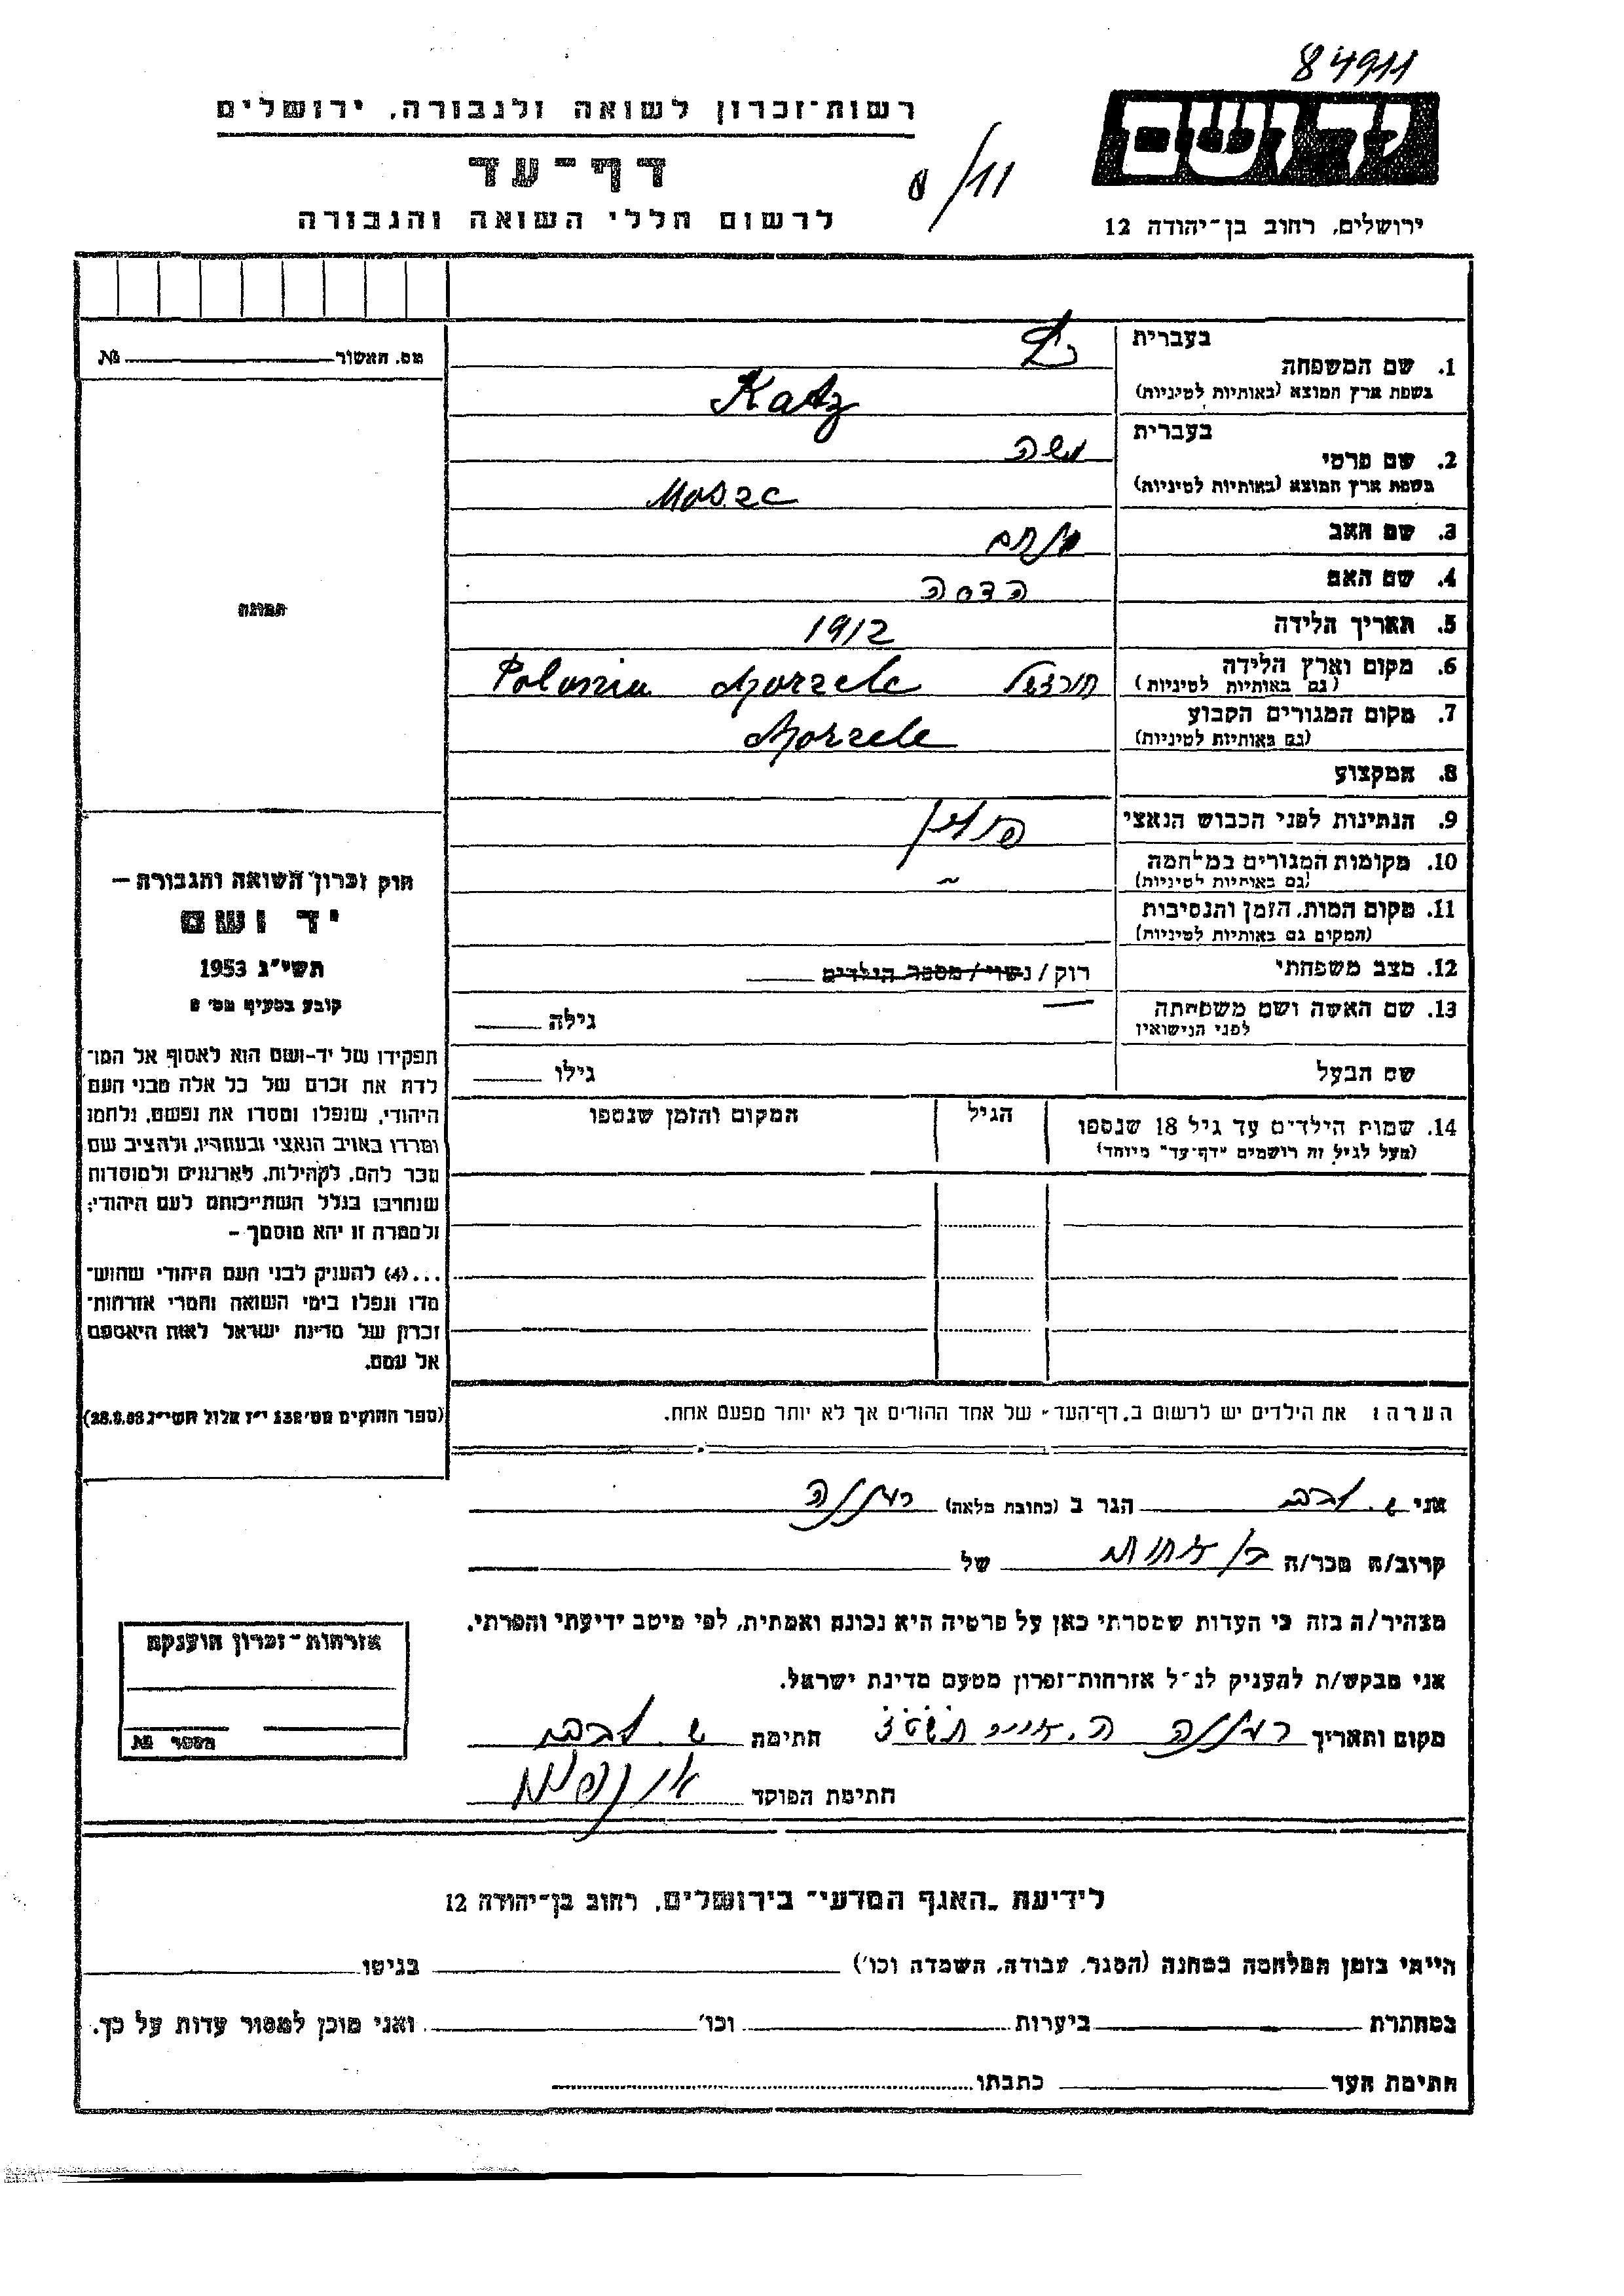 84911
יד ושם
רשות־זכרון לשואה ולגבורה, ירושלים
דף־עד
לרשום חללי השואה והגבורה
ירושלים, רחוב בן־יהודה 12
מס. האשור № 
בעברית
1. שם המשפחה
כץ
בשפת ארץ המוצא (באותיות לטיניות)
Katz
בעברית
2. שם פרטי
משה
בשפת ארץ המוצא (באותיות לטיניות)
3. שם האב
מנחם
4. שם האם
הדסה
5. תאריך הלידה
1912
6. מקום וארץ הלידה
(גם באותיות לטיניות)
Polonia
7. מקום המגורים הקבוע
(גם באותיות לטיניות)
8. המקצוע
9. הנתינות לפני הכבוש הנאצי
פולין
10. מקומות המגורים במלחמה
(גם באותיות לטיניות)
11. מקום המות, הזמן והנסיבות
(המקום גם באותיות לטיניות)
12. מצב משפחתי
רוק / נשוי / מספר הילדים
13. שם האשה ושם משפחתה
לפני הנישואין
גילה
שם הבעל
גילו
14. שמות הילדים עד גיל 18 שנספו
(מעל לגיל זה רושמים "דף־עד" מיוחד)
הגיל
המקום והזמן שנספו
תמונה
חוק זכרון השואה והגבורה —
יד ושם
תשי"ג 1953
קובע בסעיף מס'
תפקידו של יד-ושם הוא לאסוף אל המו־
לדת את זכרם של כל אלה מבני העם
היהודי, שנפלו ומסרו את נפשם, נלחמו
ומרדו באויב הנאצי ובעוזריו, ולהציב שם
וזכר להם, לקהילות, לארגונים ולמוסדות
שנחרבו בגלל השתייכותם לעם היהודי;
ולמטרה זו יהא מוסמך –
...(4) להעניק לבני העם היהודי שהוש־
מדו ונפלו בימי השואה והמרי אזרחות־
זכרון של מדינת ישראל לאות היאספם
אל עמם.
(ספר החוקים מס' 132 י"ז אלול תשי"ג 28.8.53)
הערה: את הילדים יש לרשום ב„דף־העד" של אחד ההורים אך לא יותר מפעם אחת.
אני
הגר ב (כתובת מלאה) רעננה
קרוב/ה מכר/ה בן אחות של
מצהיר/ה בזה כי העדות שמסרתי כאן על פרטיה היא נכונה ואמתית, לפי מיטב ידיעתי והכרתי.
אני מבקש/ת להעניק לנ"ל אזרחות־זכרון מטעם מדינת ישראל.
מקום ותאריך רעננה ה. אייר
חתימה
חתימת הפוקד
אזרחות־זכרון הוענקה
מספר №
לידיעת „האגף המדעי" בירושלים, רחוב בן־יהודה 12
הייתי בזמן המלחמה במחנה (הסגר, עבודה, השמדה וכו') בגיטו
במחתרת ביערות וכו' ואני מוכן למסור עדות על כך.
חתימת העד כתבתו